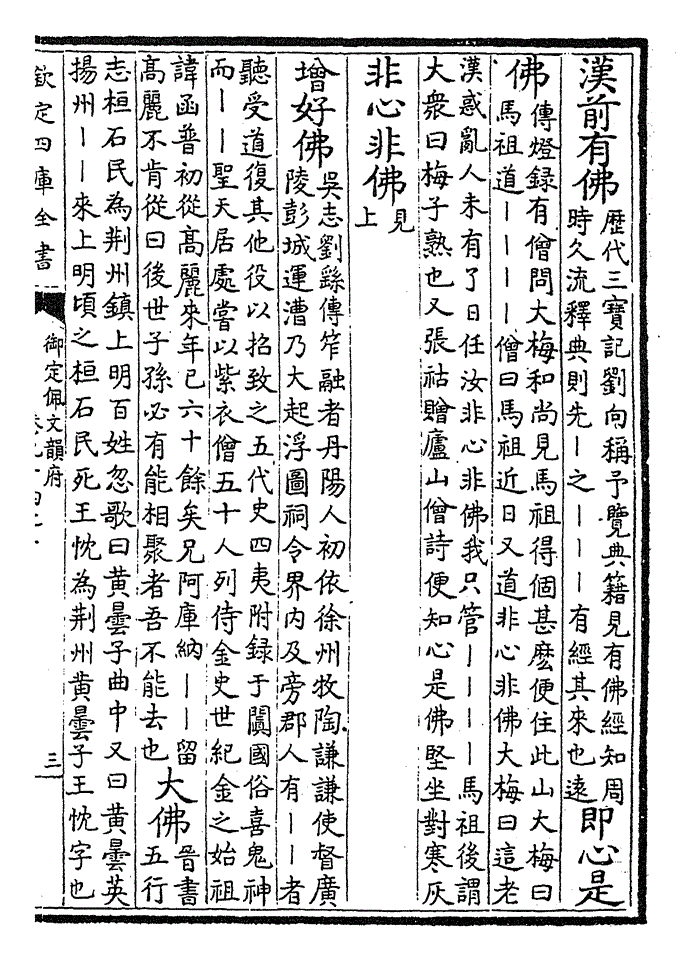 漢前有佛
歷代三寶記劉向稱予覽典籍見有佛經知周
時久流釋典則先｜之｜｜｜有經其來也遠
即心是
佛
傳燈錄有僧問大梅和尚見馬祖得個甚麽便住此山大梅曰
馬祖道｜｜｜｜僧曰馬祖近日又道非心非佛大梅曰這老
漢惑亂人未有了日任汝非心非佛我只管｜｜｜｜馬祖後謂
大衆曰梅子熟也又張祜贈廬山僧詩便知心是佛堅坐對寒灰
非心非佛
見
上
增好佛
吳志劉繇傳笮融者丹陽人初依徐州牧陶謙謙使督廣
陵彭城運漕乃大起浮圖祠令界内及旁郡人有｜｜者
聽受道復其他役以招致之五代史四夷附録于闐國俗喜鬼神
而｜｜聖天居處嘗以紫衣僧五十人列侍金史世紀金之始祖
諱函普初從髙麗來年已六十餘矣兄阿庫納｜｜留
髙麗不肯從曰後世子孫必有能相聚者吾不能去也
大佛
晉書
五行
志桓石民為荆州鎮上明百姓忽歌曰黄曇子曲中又曰黄曇英
揚州｜｜來上明頃之桓石民死王忱為荆州黄曇子王忱字也
欽定四庫全書
御定佩文韻府
三